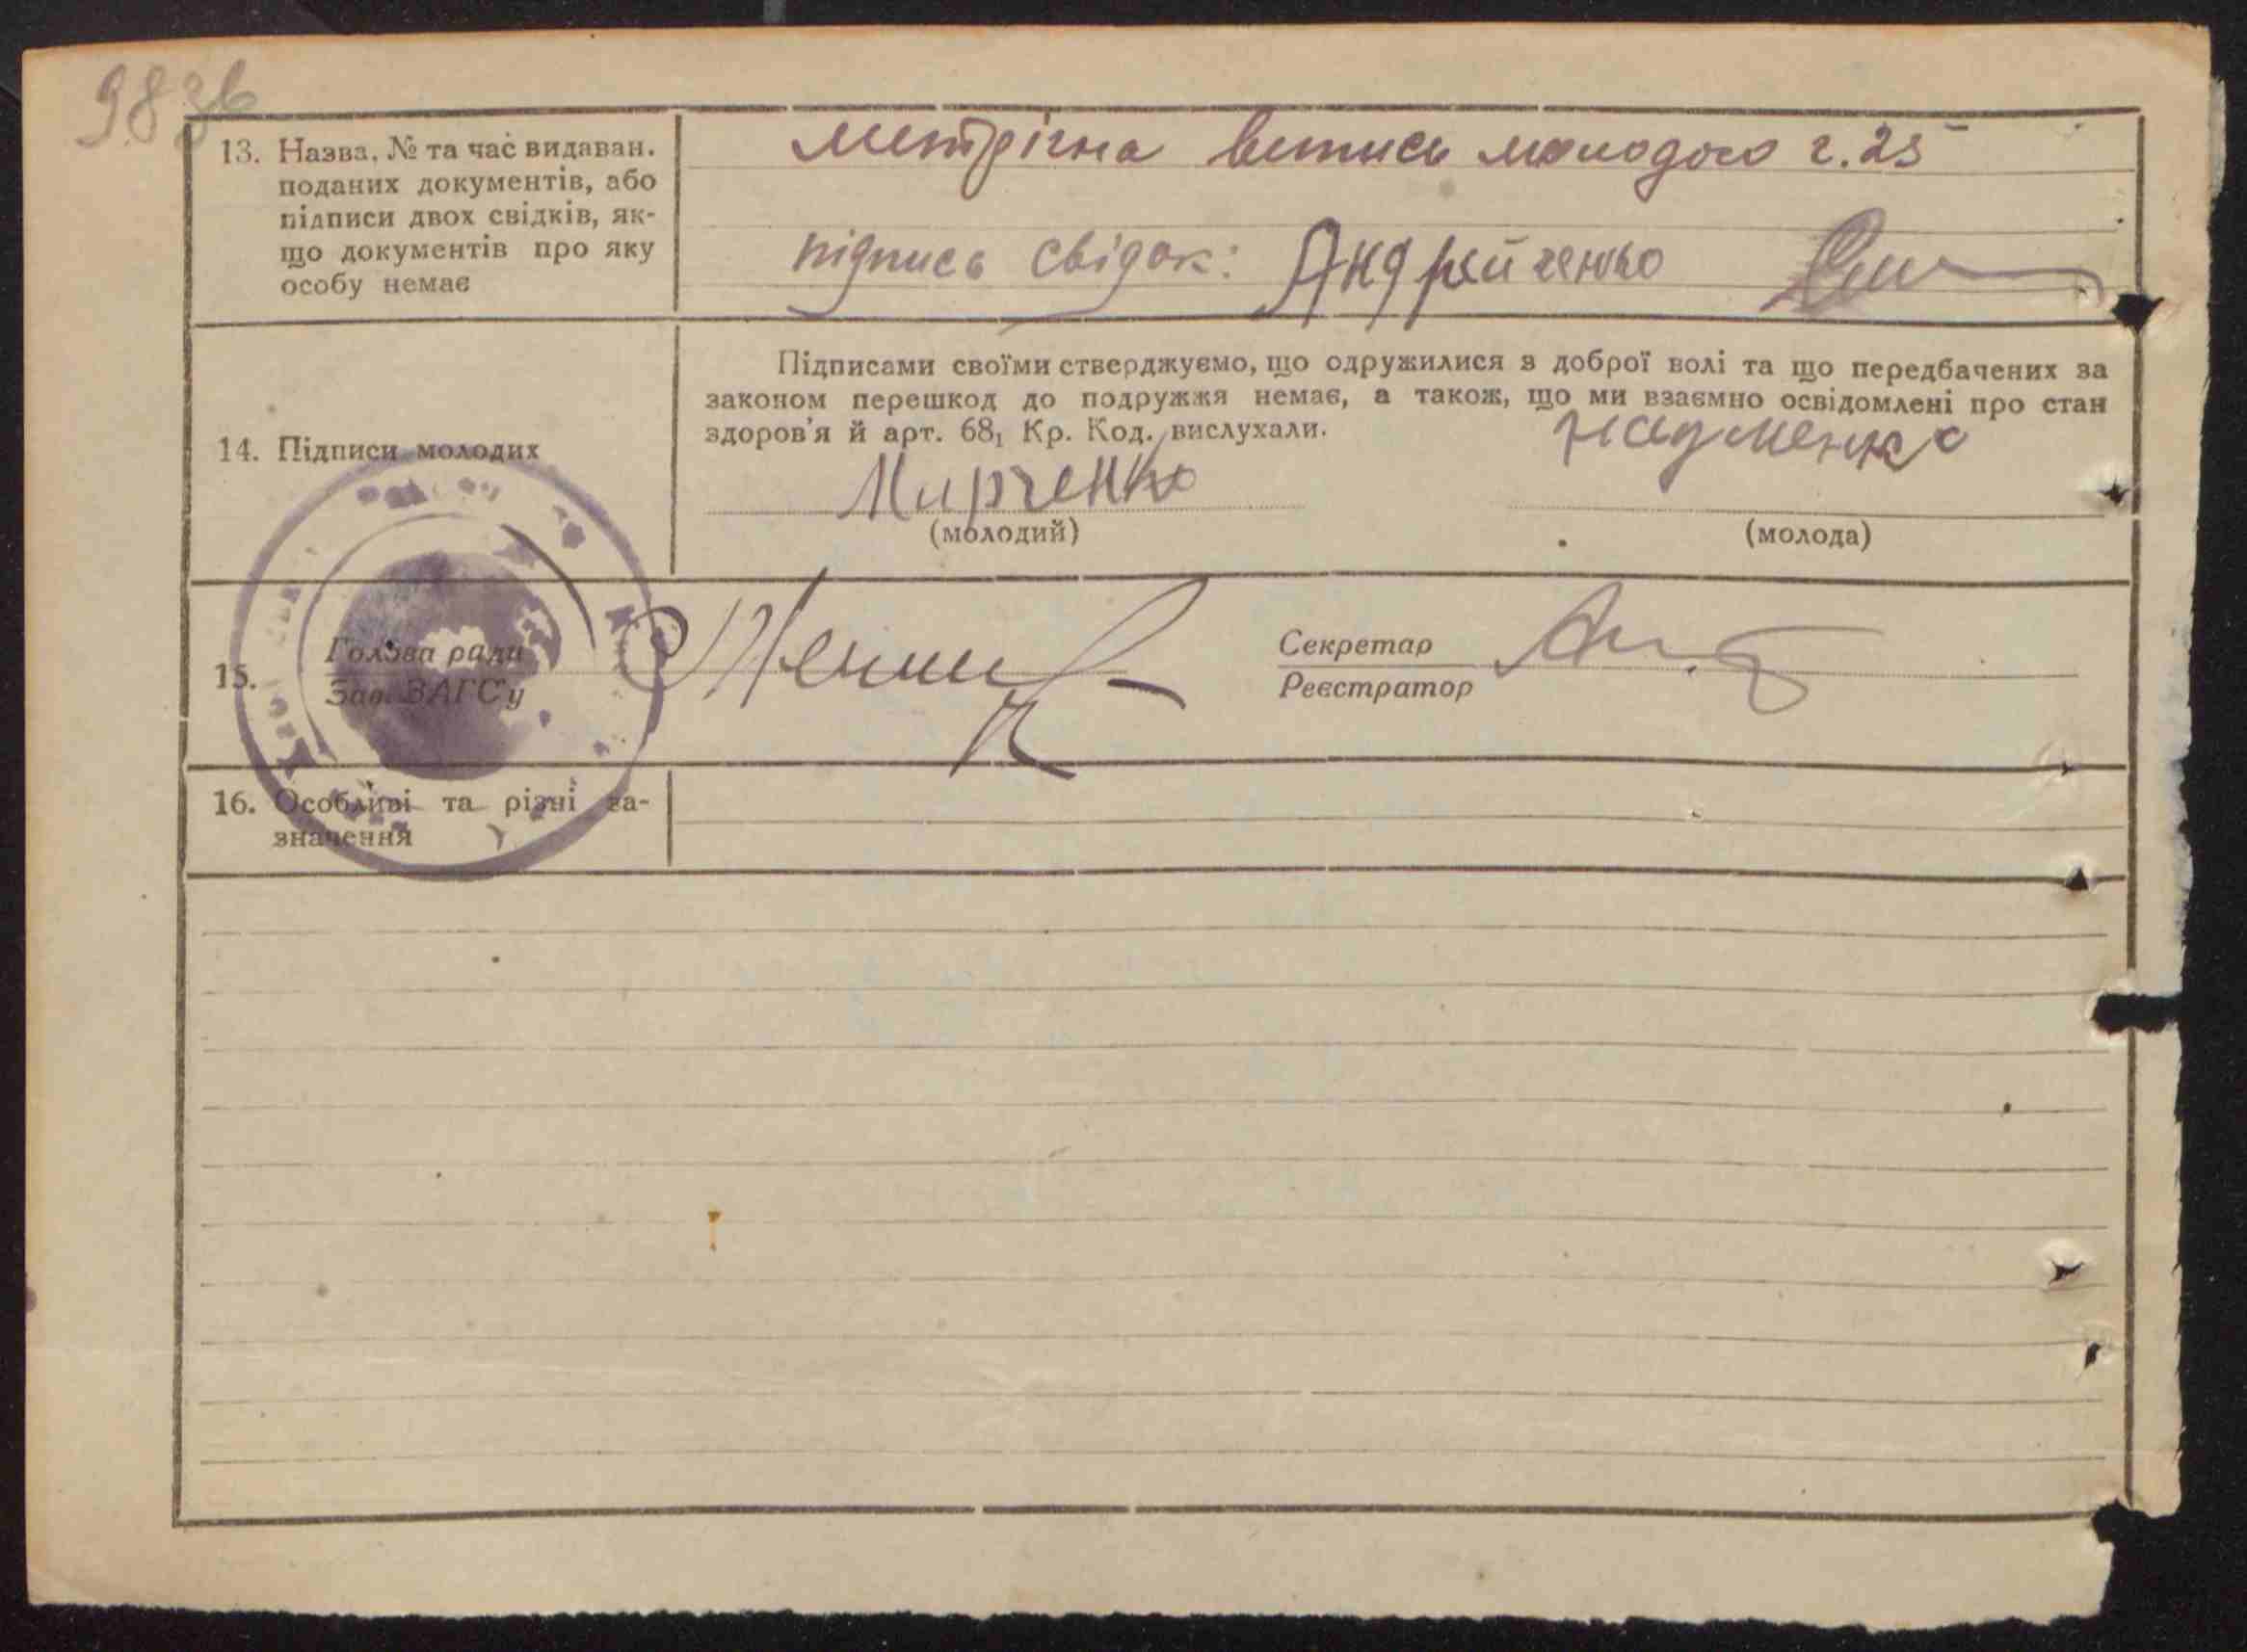 983в
13. Назва, № та час видаван.
поданих документів, або
підписи двох свідків, як-
що документів про яку
особу немає
метрічна випись молодого г. 25
підпись свідок: Андрейченко
Підписами своїми стверджуємо, що одружилися з доброї волі та що передбачених за
законом перешкод до подружжя немає, а також, що ми взаємно освідомлені про стан
здоров'я й арт. 68₁ Кр. Код. вислухали.
14. Підписи молодих
Мирченко
Науменко
(молодий)
(молода)
15.
Голова ради
Зав. ЗАГС'у
Секретар
Реєстратор
16. Особливі та різні за-
значення